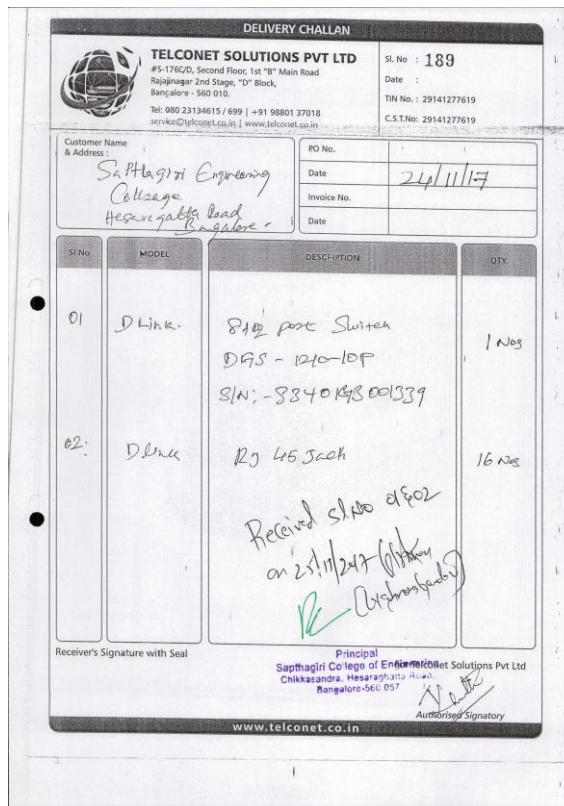 DELIVERY CHALLAN
TELCONET SOLUTIONS PVT LTD
#5-176C/D, Second Floor, 1st "B" Main Road
Rajajinagar 2nd Stage, "D" Block,
Bangalore - 560 010.
Tel: 080 23134615 / 699 | +91 98801 37018
service@telconet.co.in | www.telconet.co.in
Sl. No : 189
Date :
TIN No. : 29141277619
C.S.T.No: 29141277619
Customer Name
& Address :
Sapthagiri Engineering
College
Hesaregatta Road
Bangalore.
PO No.
Date 24/11/17
Invoice No.
Date
Sl No MODEL DESCRIPTION QTY.
01 D Link. port Switch 1 Nos
DGS - 1210-10P
S/N:-
02: Dlink RJ 45 Jack 16 Nos
Received Sl No 01&02
on
Receiver's Signature with Seal
Principal
Sapthagiri College of Engineering
Chikkasandra, Hesaraghatta Road,
Bangalore-560 057
For Telconet Solutions Pvt Ltd
Authorised Signatory
www.telconet.co.in